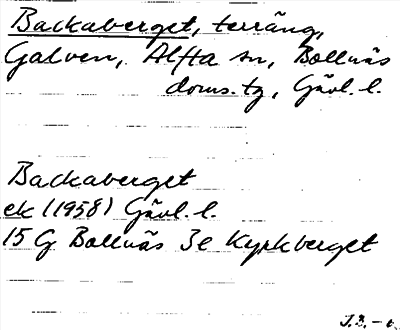 Backaberget, terräng,
Galven, Alfta sn, Bollnäs
doms.tg, Gävl. l.
Backaberget
ek (1958) Gävl. l.
15 G Bollnäs 3e Kyrkberget